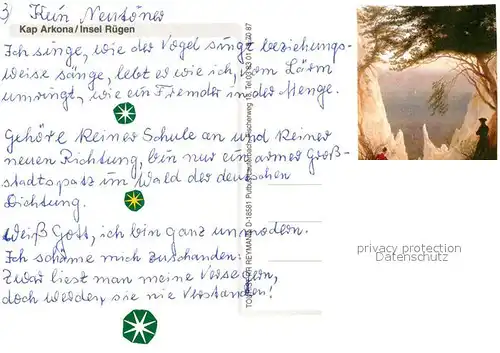 3) Kein Neutöner
Kap Arkona/Insel Rügen
Ich singe, wie der Vogel singt beziehungs-
weise sänge, lebt er wie ich, vom Lärm
umringt, wie ein Fremder in der Menge.
Gehöre keiner Schule an und keiner
neuen Richtung, bin nur ein armer Groß-
stadtspatz im Wald der deutschen
Dichtung.
Weiß Gott, ich bin ganz unmodern.
Ich schäme mich zuschanden:
Zwar liest man meine Verse gern,
doch werden sie nie Verstanden!
REYMANN, D-18581 Putbus
privacy protection
Datenschutz